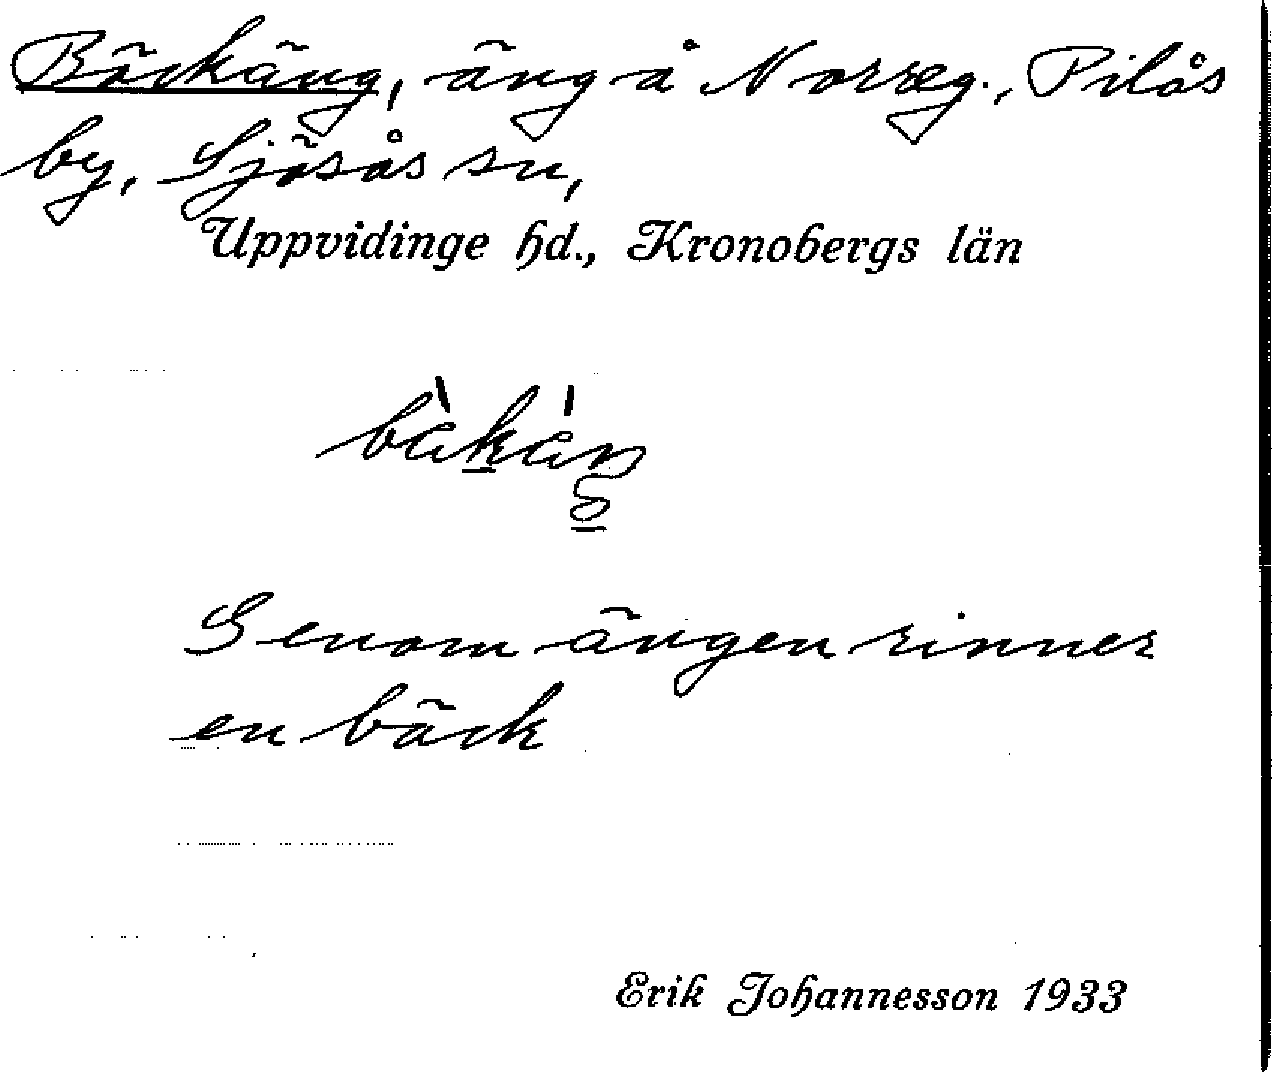 Bäckäng, äng å Norreg., Pilås
by, Sjösås sn,
Uppvidinge hd., Kronobergs län
Genom ängen rinner
en bäck
Erik Johannesson 1933